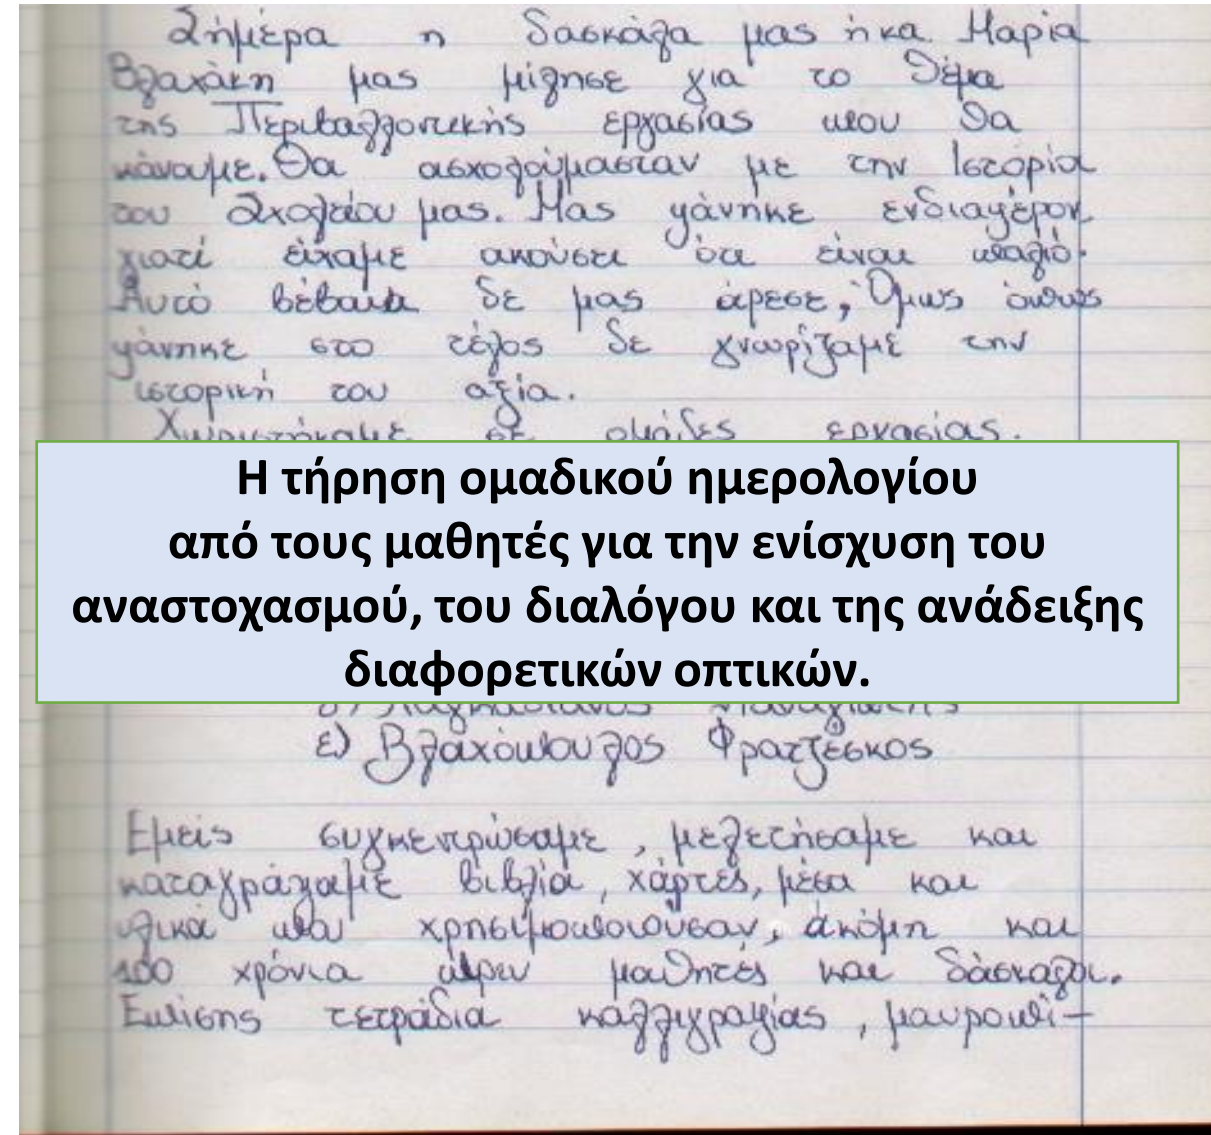 Σήμερα η δασκάλα μας ή κα. Μαρία
Βλαχάκη μας μίλησε για το θέμα
της Περιβαλλοντικής εργασίας που θα
κάναμε. Θα ασχολούμασταν με την Ιστορία
του Σχολείου μας. Μας φάνηκε ενδιαφέρον
γιατί είχαμε ακούσει ότι είναι παλιό.
Αυτό βέβαια δε μας άρεσε, Όμως όπως
φάνηκε στο τέλος δε γνωρίζαμε την
ιστορική του αξία.
Χωριστήκαμε σε ομάδες εργασίας.
Η τήρηση ομαδικού ημερολογίου
από τους μαθητές για την ενίσχυση του
αναστοχασμού, του διαλόγου και της ανάδειξης
διαφορετικών οπτικών.
ε) Βλαχόπουλος Φρατζέσκος
Εμείς συγκεντρώσαμε, μελετήσαμε και
καταγράψαμε βιβλία, χάρτες, μέσα και
υλικά που χρησιμοποιούσαν, άκόμη και
100 χρόνια πριν μαθητές και δάσκαλοι.
Επίσης τετράδια καλλιγραφίας, μαυροπί-